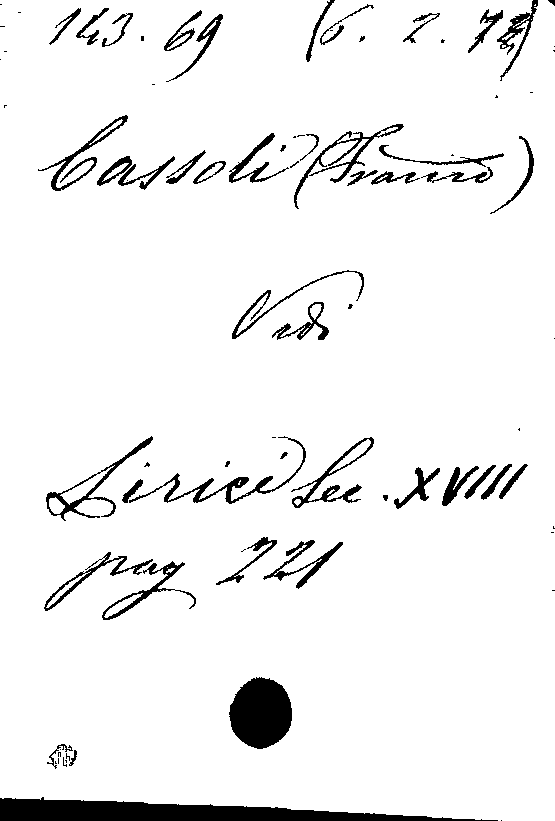 143.69 (6. 2. 7
Cassoli (Franco)
Vedi
Lirici Sec. XVIII
pag 221